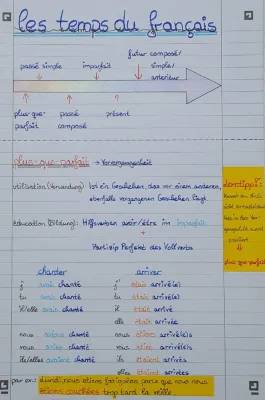 les temps du français
futur composé/
passé simple imparfait simple/
antérieur
plus-que- passé présent
parfait composé
plus-que-parfait → Vorvergangenheit
utilisation (Verwendung): Ist ein Geschehen, das vor einem anderen,
ebenfalls vergangenen Geschehen liegt.
éducation (Bildung): Hilfsverben avoir/être im imparfait
+
Partizip Perfekt des Vollverbs
Lerntipp:
plus-que-parfait
chanter arriver
j' avais chanté j' étais arrivé(e)
tu avais chanté tu étais arrivé(e)
il/elle avait chanté il était arrivé
elle était arrivée
nous avions chanté nous étions arrivé(e)s
vous aviez chanté vous étiez arrivé(e)s
ils/elles avaient chanté ils étaient arrivés
elles étaient arrivées
par ex.: Lundi, nous étions fatigué(e)s parce que nous nous
étions couché(e)s trop tard la veille.